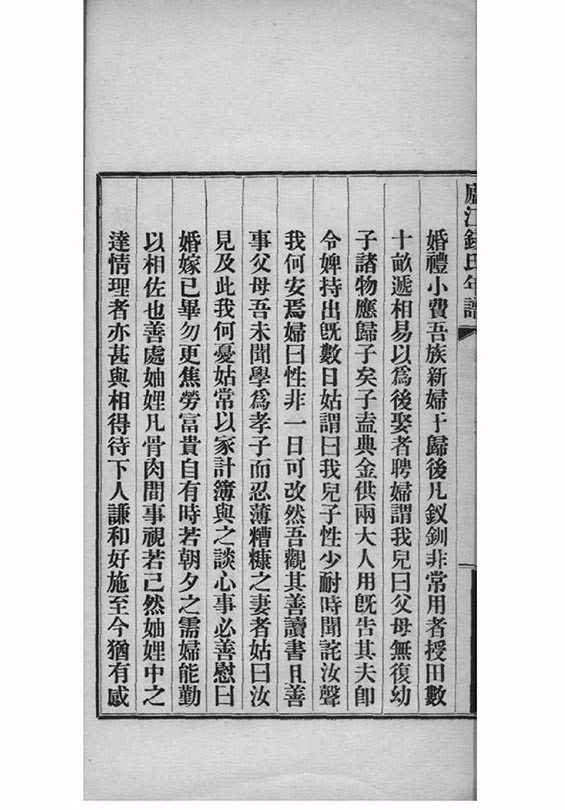 廬江錢氏年譜
婚禮小費吾族新婦于歸後凡釵釧非常用者授田數
十畝遞相易以爲後娶者聘婦謂我兒曰父母無復幼
子諸物應歸子矣子盍典金供兩大人用旣告其夫卽
令婢持出旣數日姑謂曰我兒子性少耐時聞詫汝聲
我何安焉婦曰性非一日可改然吾觀其善讀書且善
事父母吾未聞學爲孝子而忍薄糟糠之妻者姑曰汝
見及此我何憂姑常以家計簿與之談心事必善慰曰
婚嫁已畢勿更焦勞富貴自有時若朝夕之需婦能勤
以相佐也善處妯娌凡骨肉間事視若己然妯娌中之
達情理者亦甚與相得待下人謙和好施至今猶有感